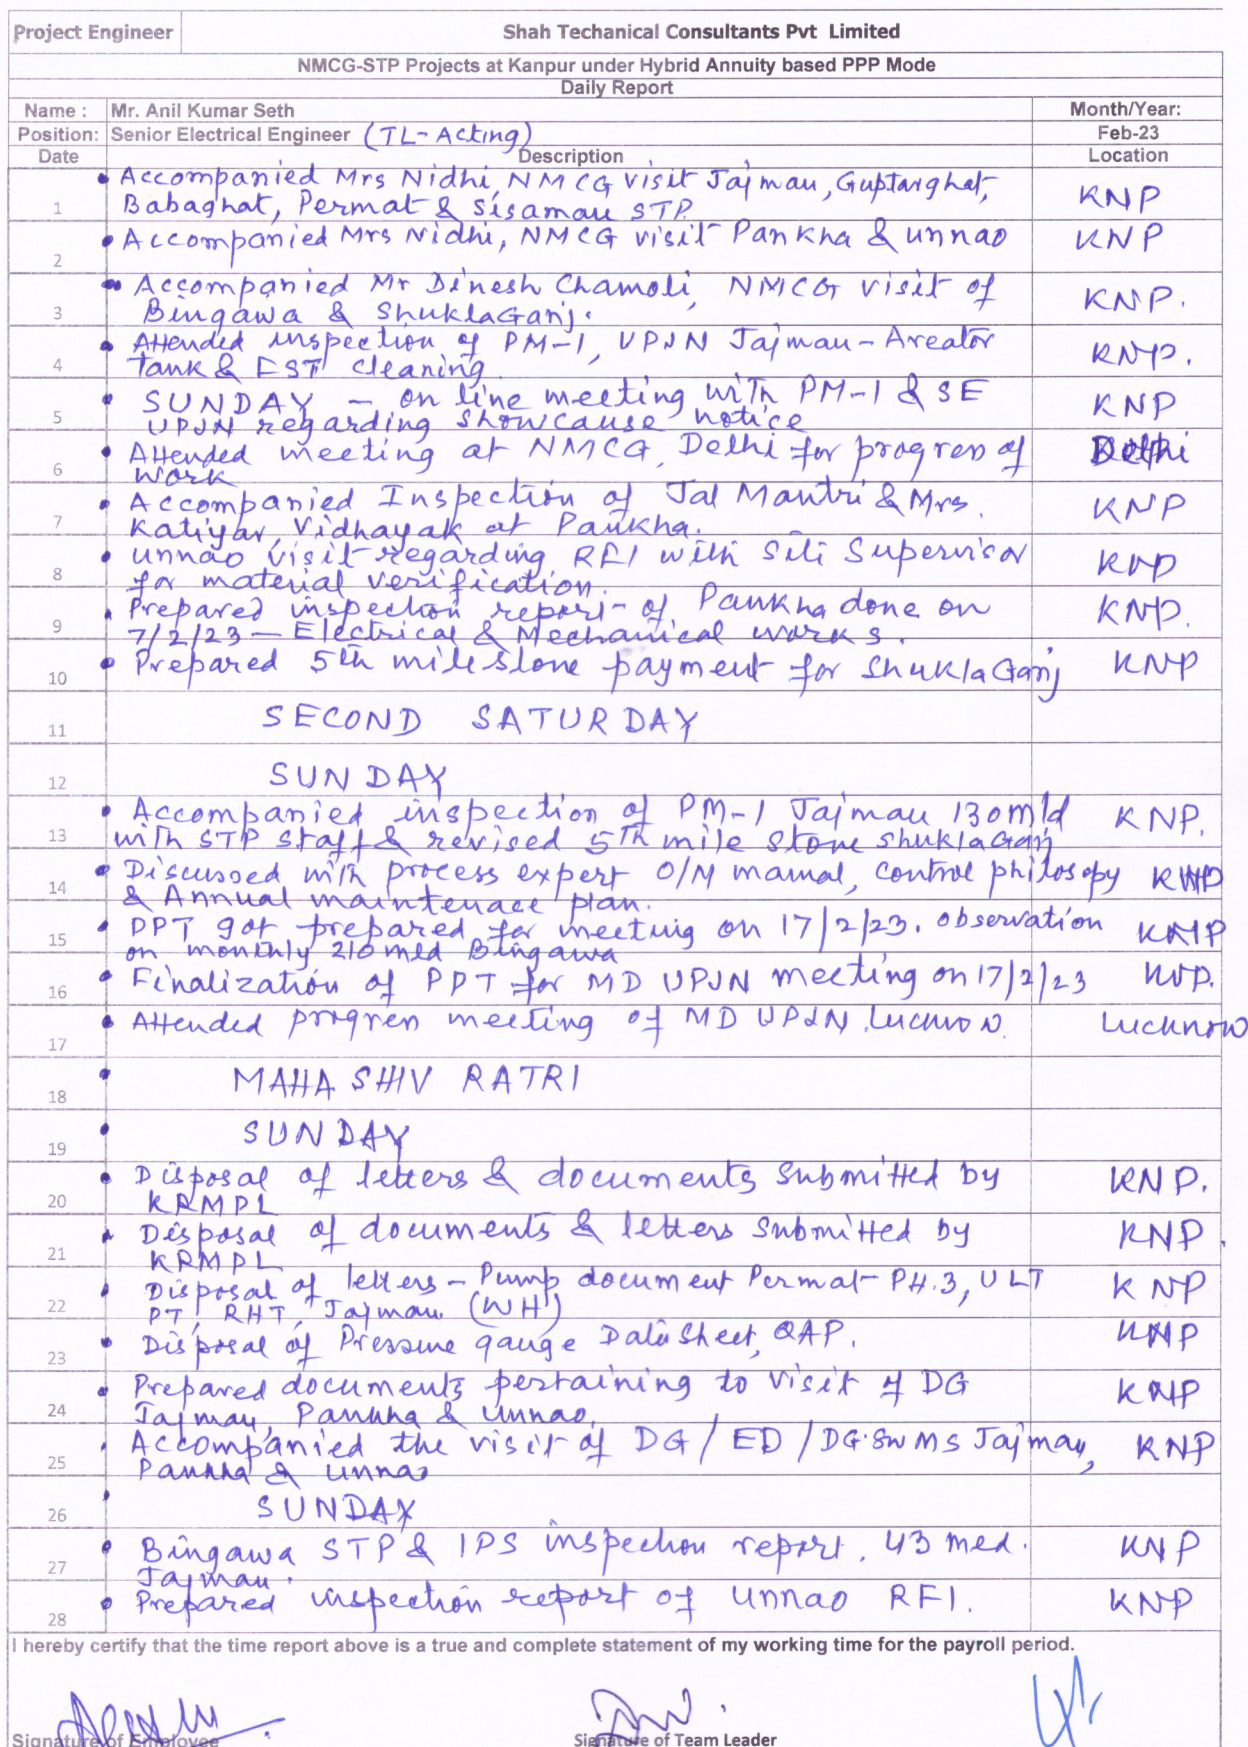 Project Engineer Shah Techanical Consultants Pvt Limited
NMCG-STP Projects at Kanpur under Hybrid Annuity based PPP Mode
Daily Report
Name : Mr. Anil Kumar Seth Month/Year:
Position: Senior Electrical Engineer (TL-Acting) Feb-23
Date Description Location
• Accompanied Mrs Nidhi, NMCG visit Jajmau, Guptarghat,
1 Babaghat, Permat & Sisamau STP. KNP
2 • Accompanied Mrs Nidhi, NMCG visit Pankha & unnao KNP
• Accompanied Mr Dinesh Chamoli, NMCG visit of
3 Bingawa & ShuklaGanj. KNP.
• Attended inspection of PM-1, UPJN Jajmau - Areator
4 Tank & FST cleaning. KNP.
• SUNDAY - on line meeting with PM-1 & SE
5 UPJN regarding showcause notice KNP
• Attended meeting at NMCG, Delhi for progress of
6 work Delhi
• Accompanied Inspection of Jal Mantri & Mrs.
7 Katiyar, Vidhayak at Pankha. KNP
• unnao visit regarding RFI with Siti Supervisor
8 for material verification. KNP
• Prepared inspection report of Pankha done on
9 7/2/23 - Electrical & Mechanical works. KNP.
10 • Prepared 5th milestone payment for ShuklaGanj KNP
11 SECOND SATURDAY
12 SUNDAY
• Accompanied inspection of PM-1 Jajmau 130mld
13 with STP staff & revised 5th mile stone ShuklaGanj KNP.
• Discussed with process expert O/M manual, control philosopy
14 & Annual maintenace plan. KNP
• PPT got prepared for meeting on 17/2/23. observation
15 on monthly 210 mld Bingawa KNP
16 • Finalization of PPT for MD UPJN meeting on 17/2/23 KNP.
17 • Attended progress meeting of MD UPJN, Lucknow. Lucknow
18 • MAHA SHIV RATRI
19 • SUNDAY
• Disposal of letters & documents submitted by
20 KRMPL KNP.
• Disposal of documents & letters submitted by
21 KRMPL KNP.
• Disposal of letters - Pump document Permat - PH.3, ULT
22 PT, RHT, Jajmau. (WH) KNP
23 • Disposal of Pressure gauge Data Sheet, QAP. KNP
• Prepared documents pertaining to visit of DG
24 Jajmau, Pankha & Unnao. KNP
• Accompanied the visit of DG/ED/DG.SWMS Jajmau,
25 Pankha & Unnao KNP
26 • SUNDAY
• Bingawa STP & IPS inspection report, 43 mld.
27 Jajmau. KNP
28 • Prepared inspection report of unnao RFI. KNP
I hereby certify that the time report above is a true and complete statement of my working time for the payroll period.
Signature of Employee Signature of Team Leader